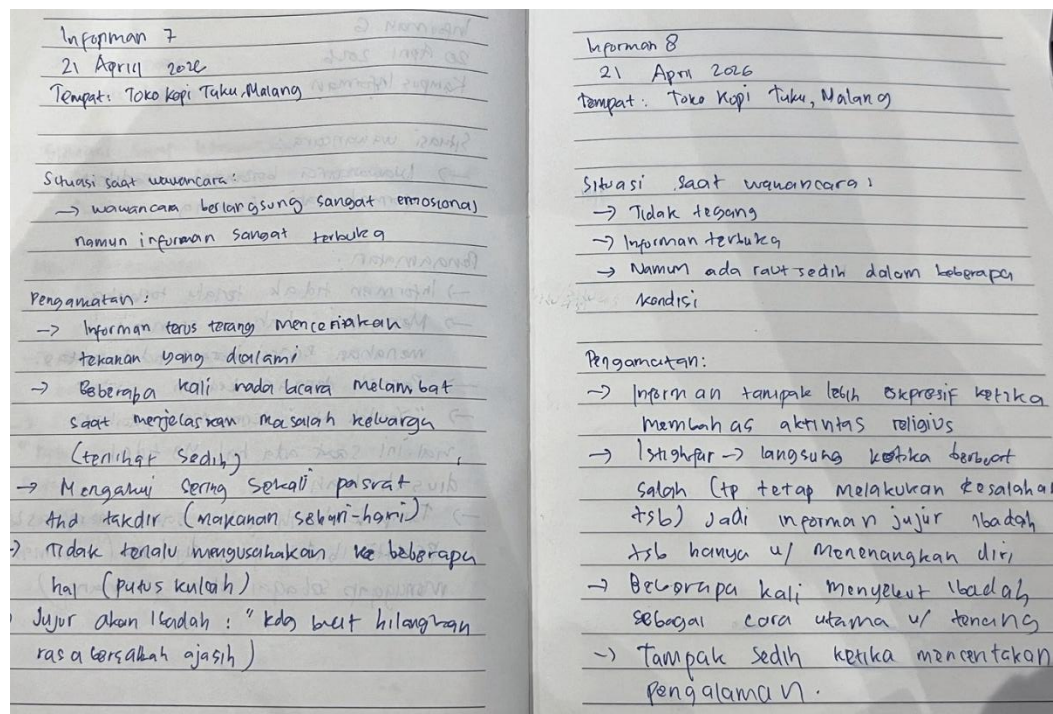 Informan 7
21 April 2026
Tempat: Toko Kopi Tuku, Malang
Situasi saat wawancara:
→ wawancara berlangsung sangat emosional
namun informan sangat terbuka
Pengamatan:
→ Informan terus terang menceritakan
tekanan yang dialami
→ Beberapa kali nada bicara melambat
saat menjelaskan masalah keluarga
(terlihat sedih)
→ Mengakui sering sekali pasrat
thd takdir (makanan sehari-hari)
→ Tidak terlalu mengusahakan ke beberapa
hal (putus kuliah)
Jujur akan ibadah: "kdg buat hilangkan
rasa bersalah ajasih)
Informan 8
21 April 2026
Tempat: Toko Kopi Tuku, Malang
Situasi saat wawancara:
→ Tidak tegang
→ Informan terbuka
→ Namun ada raut sedih dalam beberapa
kondisi
Pengamatan:
→ Informan tampak lebih ekspresif ketika
membahas aktivitas religius
→ Istighfar → langsung ketika berbuat
salah (tp tetap melakukan kesalahan
tsb) Jadi informan jujur ibadah
tsb hanya u/ menenangkan diri
→ Beberapa kali menyebut ibadah
sebagai cara utama u/ tenang
→ Tampak sedih ketika menceritakan
pengalaman.